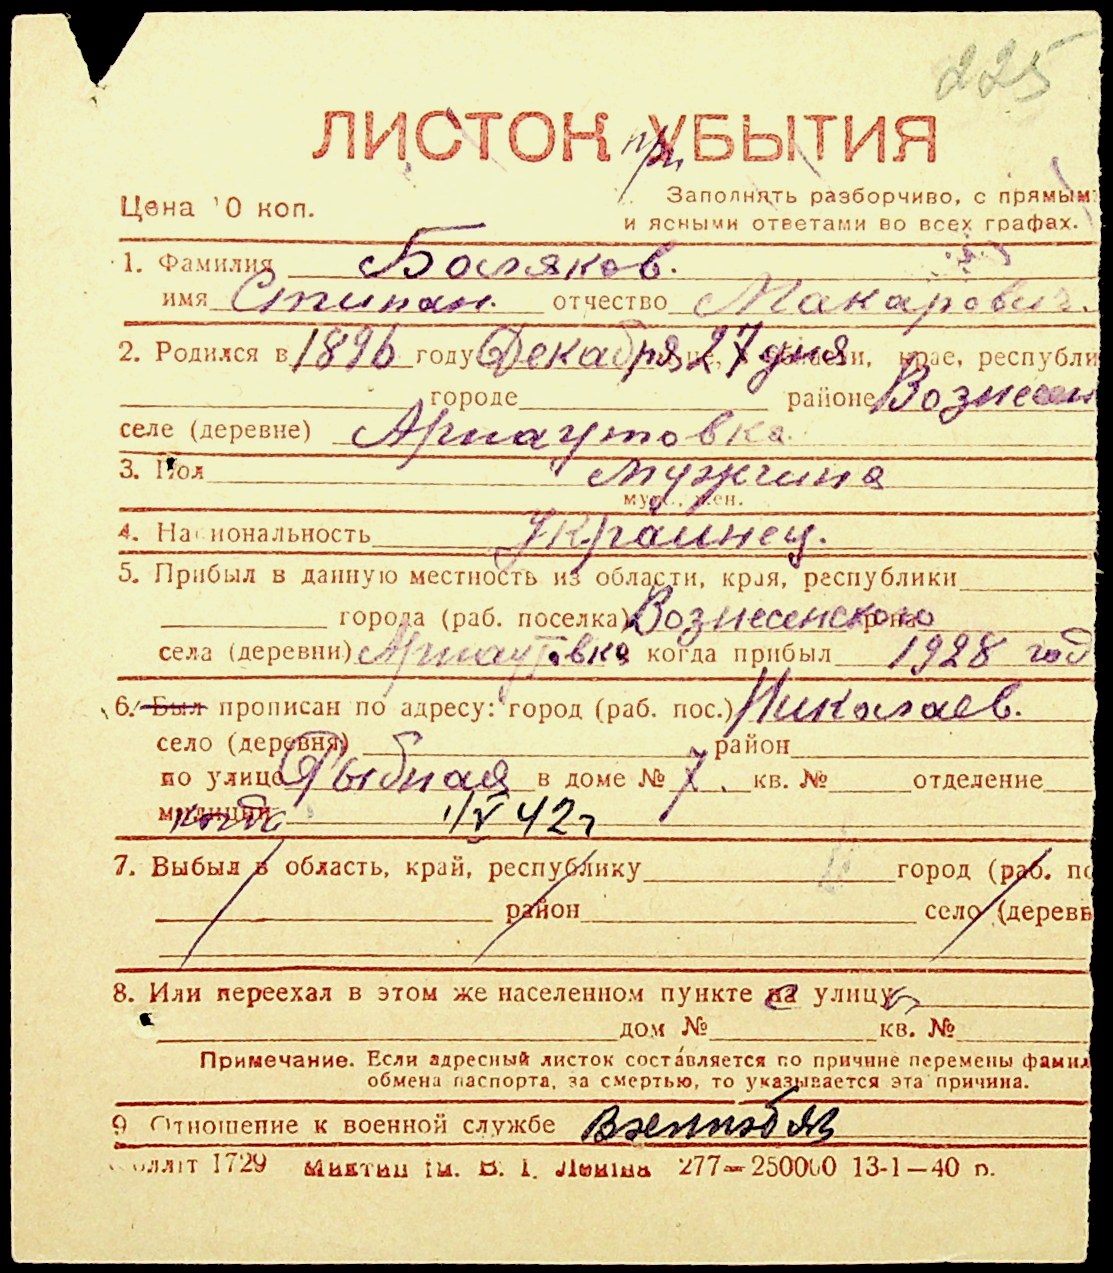 225
ЛИСТОК при УБЫТИЯ
Цена 10 коп.
Заполнять разборчиво, с прямыми
и ясными ответами во всех графах.
1. Фамилия Боляков.
имя Стипан. отчество Макарович.
2. Родился в 1896 году Декабря 27 дня области, крае, республи
городе районе Вознесен
селе (деревне) Арнаутовка.
3. Пол мужчина
муж., жен.
4. Национальность украинец.
5. Прибыл в данную местность из области, края, республики
города (раб. поселка) Вознесенского р-на
села (деревни) Арнаутовка когда прибыл 1928 год
6. Был прописан по адресу: город (раб. пос.) Николаев.
село (деревня) район
по улице Рыбная в доме № 7 кв. № отделение
милиции когда 1/V 42 г
7. Выбыл в область, край, республику город (раб. по
район село (деревн
8. Или переехал в этом же населенном пункте на улицу
дом № кв. №
Примечание. Если адресный листок составляется по причине перемены фамил
обмена паспорта, за смертью, то указывается эта причина.
9 Отношение к военной службе Военнообяз
1729 ім. В. І. Леніна 277—250000 13-1—40 р.